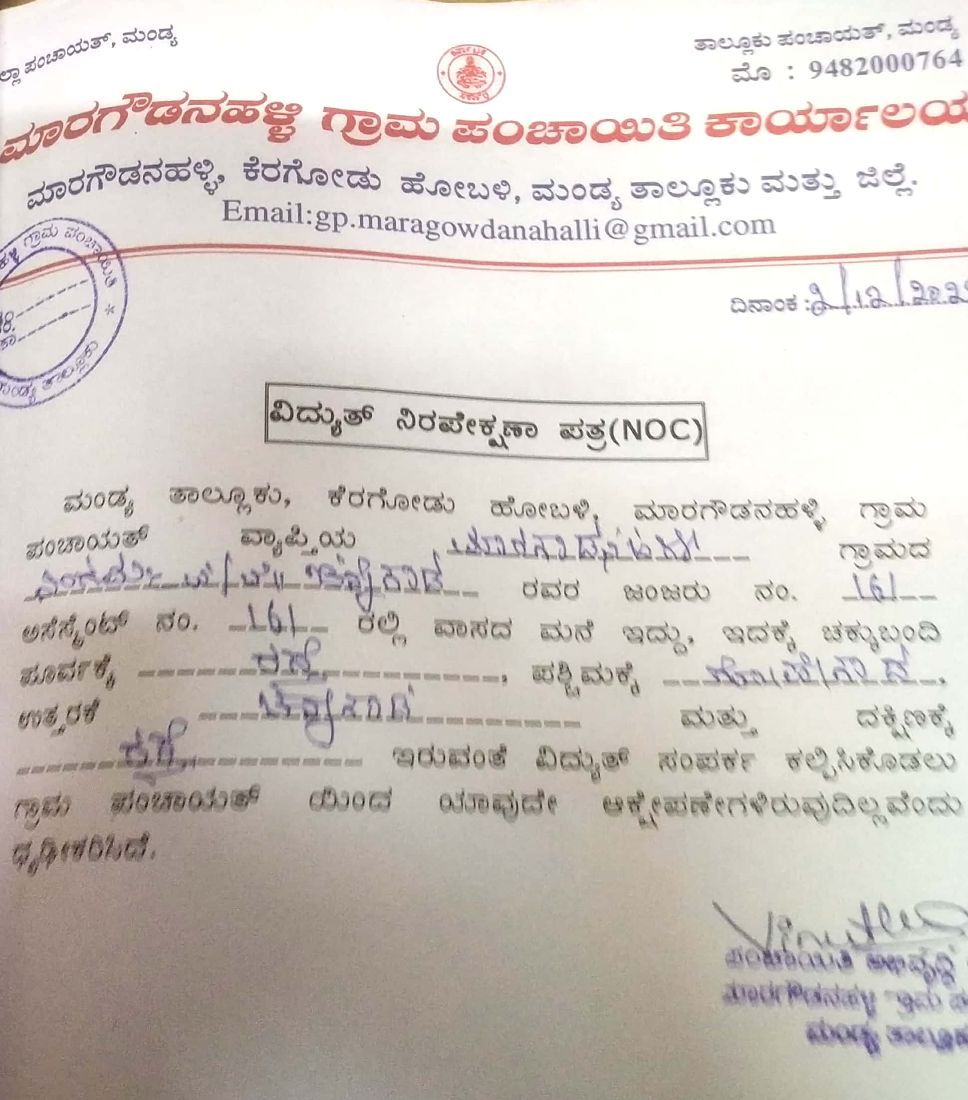 ಲ್ಲಾ ಪಂಚಾಯತ್, ಮಂಡ್ಯ
ತಾಲ್ಲೂಕು ಪಂಚಾಯತ್, ಮಂಡ್ಯ
ಮೊ : 9482000764
ಮಾರಗೌಡನಹಳ್ಳಿ ಗ್ರಾಮ ಪಂಚಾಯಿತಿ ಕಾರ್ಯಾಲಯ
ಮಾರಗೌಡನಹಳ್ಳಿ, ಕೆರಗೋಡು ಹೋಬಳಿ, ಮಂಡ್ಯ ತಾಲ್ಲೂಕು ಮತ್ತು ಜಿಲ್ಲೆ.
Email:gp.maragowdanahalli@gmail.com
ಗ್ರಾಮ ಪಂಚಾಯಿತಿ *
ಮಂಡ್ಯ ತಾಲ್ಲೂಕು
ದಿನಾಂಕ :
ವಿದ್ಯುತ್ ನಿರಪೇಕ್ಷಣಾ ಪತ್ರ(NOC)
ಮಂಡ್ಯ ತಾಲ್ಲೂಕು, ಕೆರಗೋಡು ಹೋಬಳಿ, ಮಾರಗೌಡನಹಳ್ಳಿ ಗ್ರಾಮ
ಪಂಚಾಯತ್ ವ್ಯಾಪ್ತಿಯ ಗ್ರಾಮದ
ರವರ ಜಂಜರು ನಂ. 161
ಅಸೆಸ್ಮೆಂಟ್ ನಂ. 161 ರಲ್ಲಿ ವಾಸದ ಮನೆ ಇದ್ದು, ಇದಕ್ಕೆ ಚಕ್ಕುಬಂದಿ
ಪೂರ್ವಕ್ಕೆ ರಸ್ತೆ, ಪಶ್ಚಿಮಕ್ಕೆ
ಉತ್ತರಕೆ ಮತ್ತು ದಕ್ಷಿಣಕ್ಕೆ
ರಸ್ತೆ ಇರುವಂತೆ ವಿದ್ಯುತ್ ಸಂಪರ್ಕ ಕಲ್ಪಿಸಿಕೊಡಲು
ಗ್ರಾಮ ಪಂಚಾಯತ್ ಯಿಂದ ಯಾವುದೇ ಆಕ್ಷೇಪಣೇಗಳಿರುವುದಿಲ್ಲವೆಂದು
ಧೃಢೀಕರಿಸಿದೆ.
ಪಂಚಾಯಿತಿ ಅಭಿವೃದ್ಧಿ
ಮಾರಗೌಡನಹಳ್ಳಿ ಗ್ರಾಮ
ಮಂಡ್ಯ ತಾಲ್ಲೂಕು